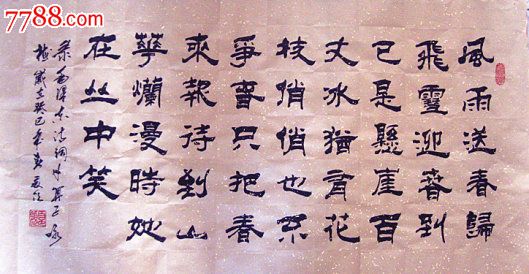 7788.com
風雨送春歸
飛雪迎春到
已是懸崖百
丈冰猶有花
枝俏俏也不
爭春只把春
來報待到山
華爛漫時她
在丛中笑
录毛泽东诗词卜算子咏
梅歲在癸巳年